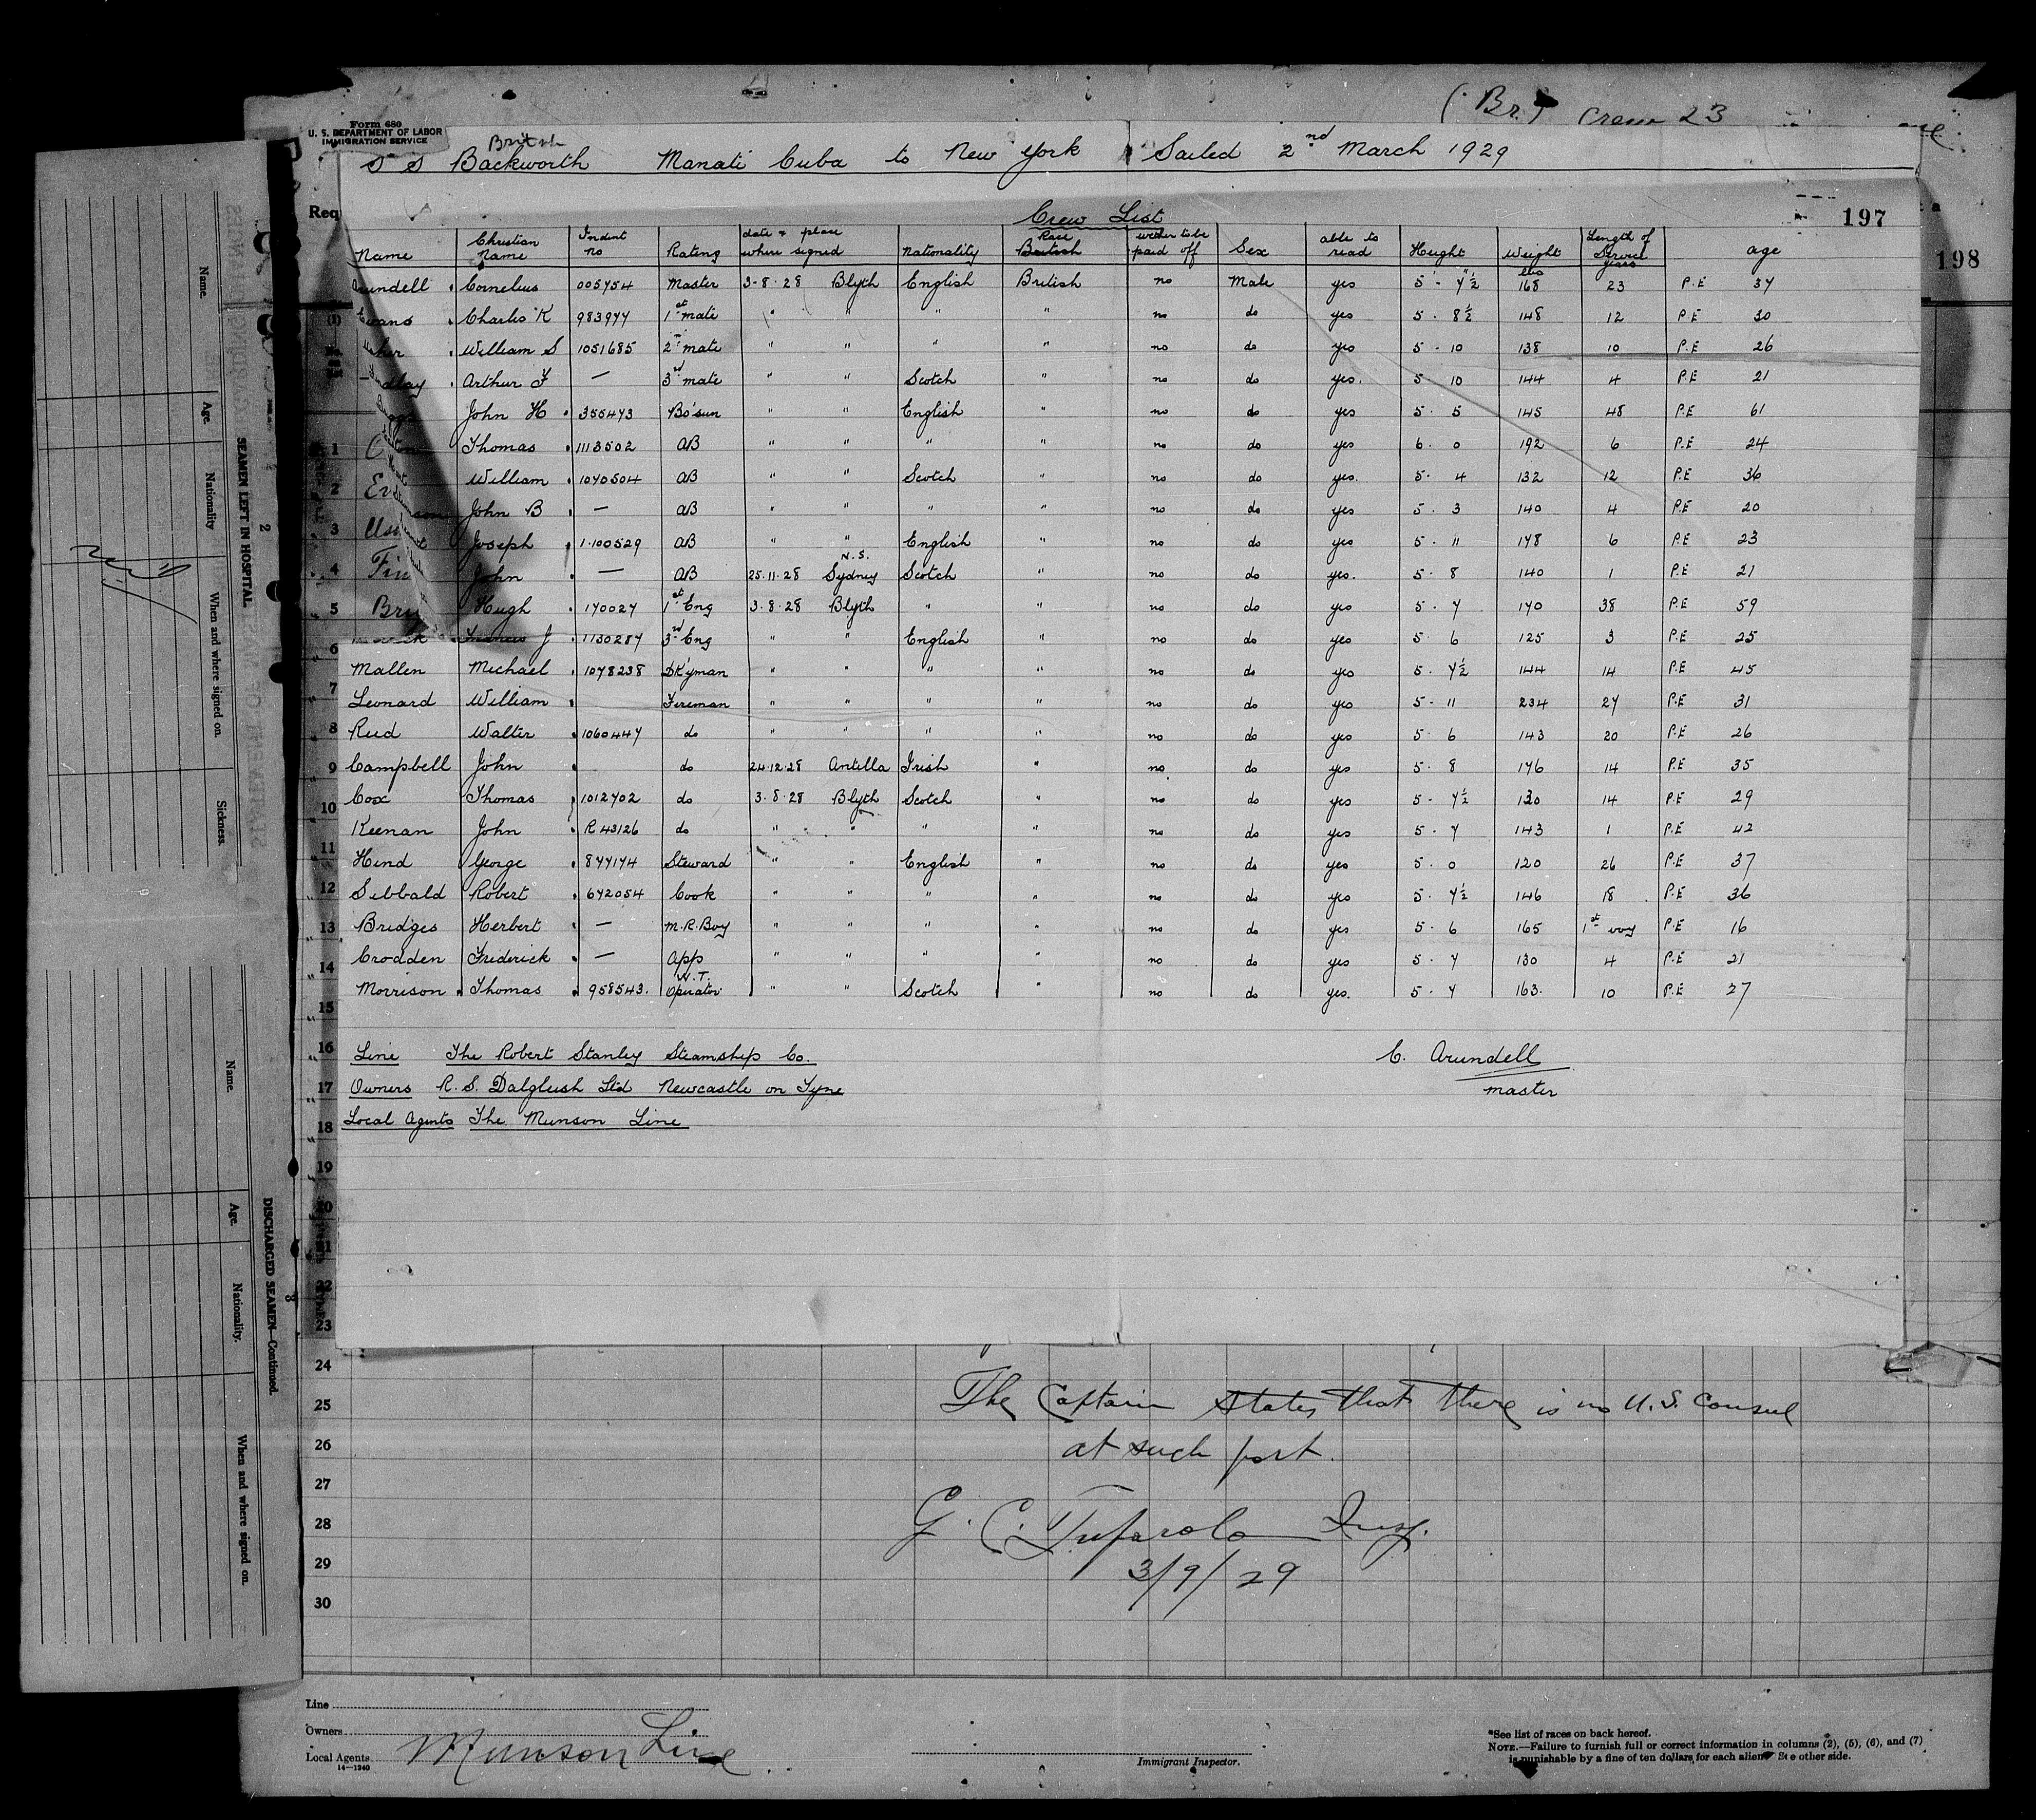 (Br.) Crew 23
Form 680
U. S. DEPARTMENT OF LABOR
IMMIGRATION SERVICE
British
S S Backworth Manati Cuba to New York Sailed 2nd March 1929
Req
Crew List
197
198
Name Christian Name Indent no Rating date & place where signed Nationality Race British wether to be paid off Sex able to read Height Weight Length of Service years age
lbs
Arundell Cornelius 005754 Master 3-8-28 Blyth English British no Male yes 5 - 7½ 168 23 P.E 37
Evans Charles K 983977 1st mate " " " " no do yes 5 . 8½ 148 12 P.E 30
William S 1051685 2nd mate " " " " no do yes 5 - 10 138 10 P.E 26
Arthur F — 3rd mate " " Scotch " no do yes. 5 . 10 144 4 P.E 21
John H 355473 Bo'sun " " English " no do yes 5 . 5 145 48 P.E 61
1 Thomas 1113502 AB " " " " no do yes 6 . 0 192 6 P.E 24
2 Ev William 1070504 AB " " Scotch " no do yes. 5 . 4 132 12 P.E 36
John B — AB " " " " no do yes 5 . 3 140 4 P.E 20
3 Joseph 1.100529 AB " " English " no do yes 5 . 11 178 6 P.E 23
4 Fin John — AB 25.11.28 Sydney N.S. Scotch " no do yes. 5 . 8 140 1 P.E 21
5 Bry Hugh 170027 1st Eng 3.8.28 Blyth " " no do yes 5 . 7 170 38 P.E 59
6 Francis J 1130287 3rd Eng " " English " no do yes 5 . 6 125 3 P.E 25
Mallen Michael 1078238 DK'yman " " " " no do yes 5 . 7½ 144 14 P.E 45
7 Leonard William Fireman " " " " no do yes 5 - 11 234 27 P.E 31
8 Reed Walter 1060447 do " " " " no do yes 5 . 6 143 20 P.E 26
9 Campbell John do 24.12.28 Antilla Irish " no do yes 5 . 8 176 14 P.E 35
10 Cox Thomas 1012702 do 3.8.28 Blyth Scotch " no do yes 5 - 7½ 130 14 P.E 29
Keenan John R 43126 do " " " " no do yes 5 . 7 143 1 P.E 42
11 Hind George 877174 Steward " " English " no do yes 5 . 0 120 26 P.E 37
12 Sibbald Robert 672054 Cook " " " " no do yes 5 . 7½ 146 18 P.E 36
13 Bridges Herbert — M.R.Boy " " " " no do yes 5 . 6 165 1st voy P.E 16
14 Crodden Frederick — App " " " " no do yes 5 . 7 130 4 P.E 21
Morrison Thomas 958543. W.T. Operator " " Scotch " no do yes. 5 . 7 163. 10 P.E 27
15
16 Line The Robert Stanley Steamship Co.
C. Arundell
17 Owners R. S. Dalgliesh Ltd Newcastle on Tyne
master
18 Local Agents The Munson Line
19
20
21
22
23
24
25 The Captain states that there is no U.S. Consul
26 at such port.
27
28 G. C. Insp.
29 3/9/29
30
Line
Owners
Local Agents Munson Line
14—1240
Immigrant Inspector.
*See list of races on back hereof.
NOTE.—Failure to furnish full or correct information in columns (2), (5), (6), and (7)
is punishable by a fine of ten dollars for each alien. See other side.
2
SEAMEN LEFT IN HOSPITAL
Name. Age. Nationality When and where signed on. Sickness.
3
DISCHARGED SEAMEN—Continued.
Name. Age. Nationality. When and where signed on.